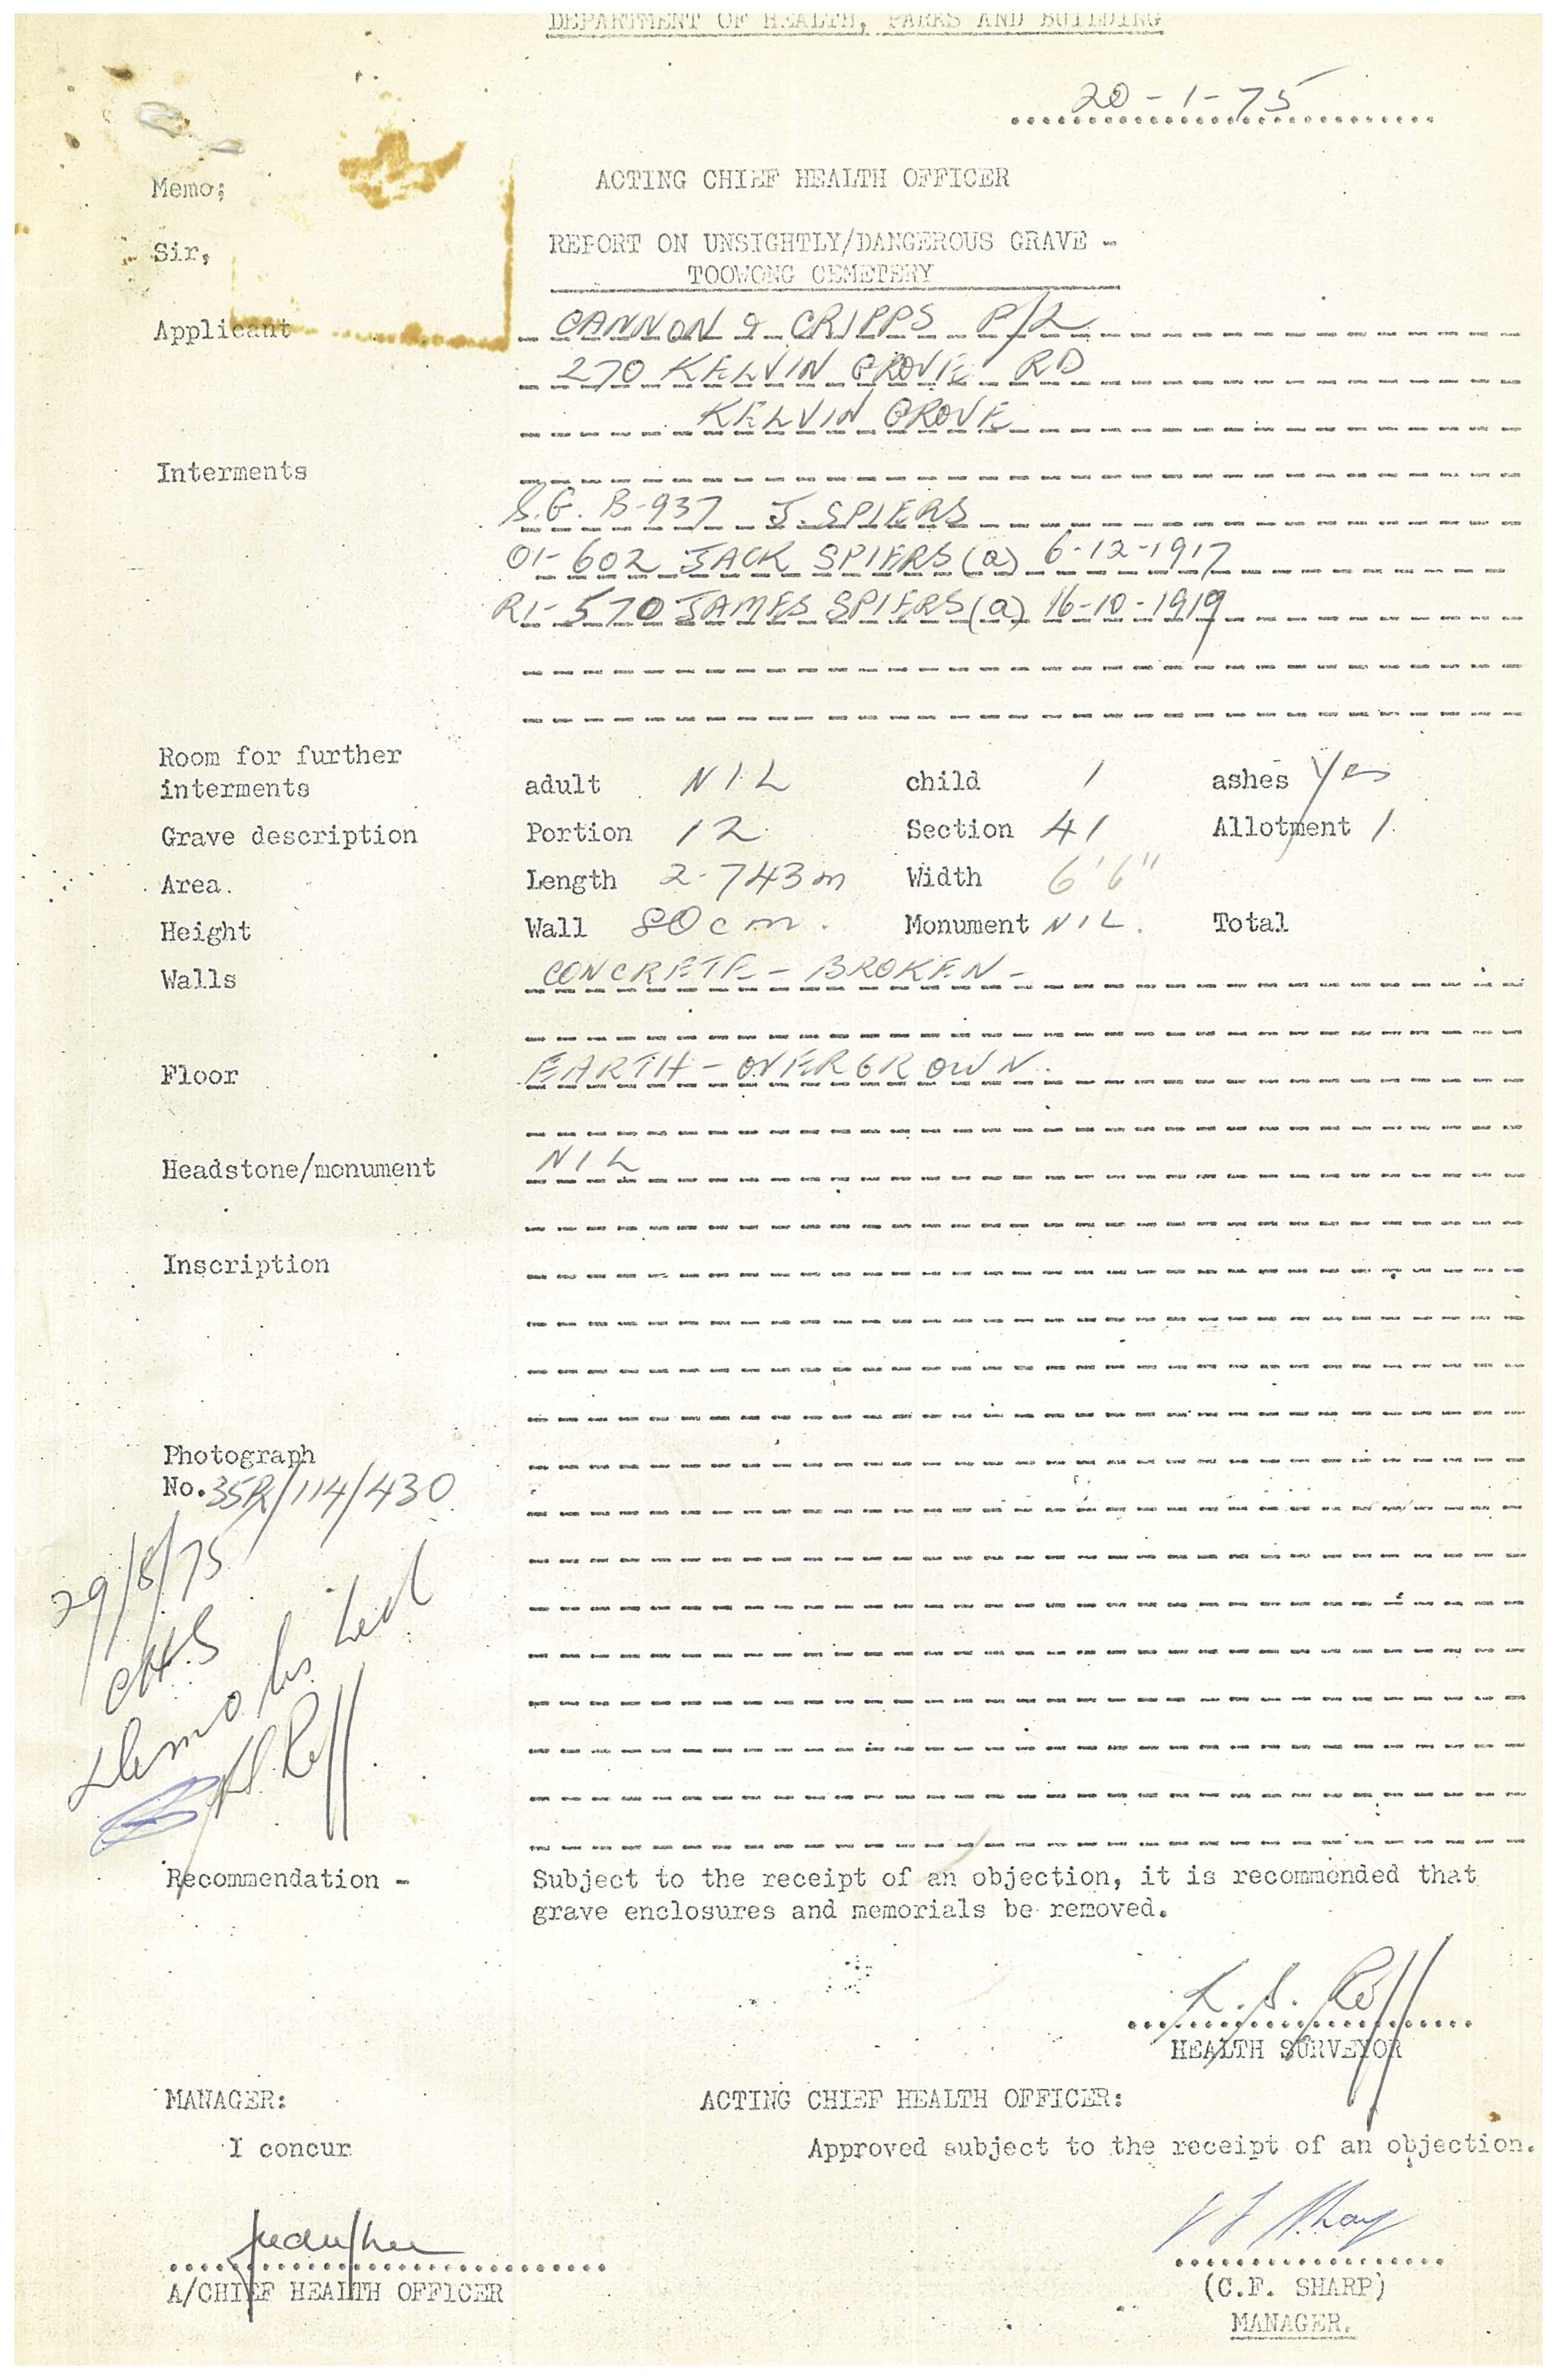 DEPARTMENT OF HEALTH, PARKS AND BUILDING
20-1-75
Memo; ACTING CHIEF HEALTH OFFICER
Sir, REPORT ON UNSIGHTLY/DANGEROUS GRAVE -
TOOWONG CEMETERY
Applicant CANNON & CRIPPS P/L
270 KELVIN GROVE RD
KELVIN GROVE
Interments
S.G. B-937 J. SPIERS
01-602 JACK SPIERS (a) 6-12-1917
R1-570 JAMES SPIERS (a) 16-10-1919
Room for further
interments adult NIL child 1 ashes Yes
Grave description Portion 12 Section 41 Allotment 1
Area. Length 2.743m Width 6'6"
Height Wall 80cm. Monument NIL. Total
Walls CONCRETE - BROKEN -
Floor EARTH - OVERGROWN.
Headstone/monument NIL
Inscription
Photograph
No. 35R/114/430
29/8/75
CHS
Demolished
Recommendation - Subject to the receipt of an objection, it is recommended that
grave enclosures and memorials be removed.
HEALTH SURVEYOR
MANAGER: ACTING CHIEF HEALTH OFFICER:
I concur Approved subject to the receipt of an objection.
A/CHIEF HEALTH OFFICER
(C.F. SHARP)
MANAGER.